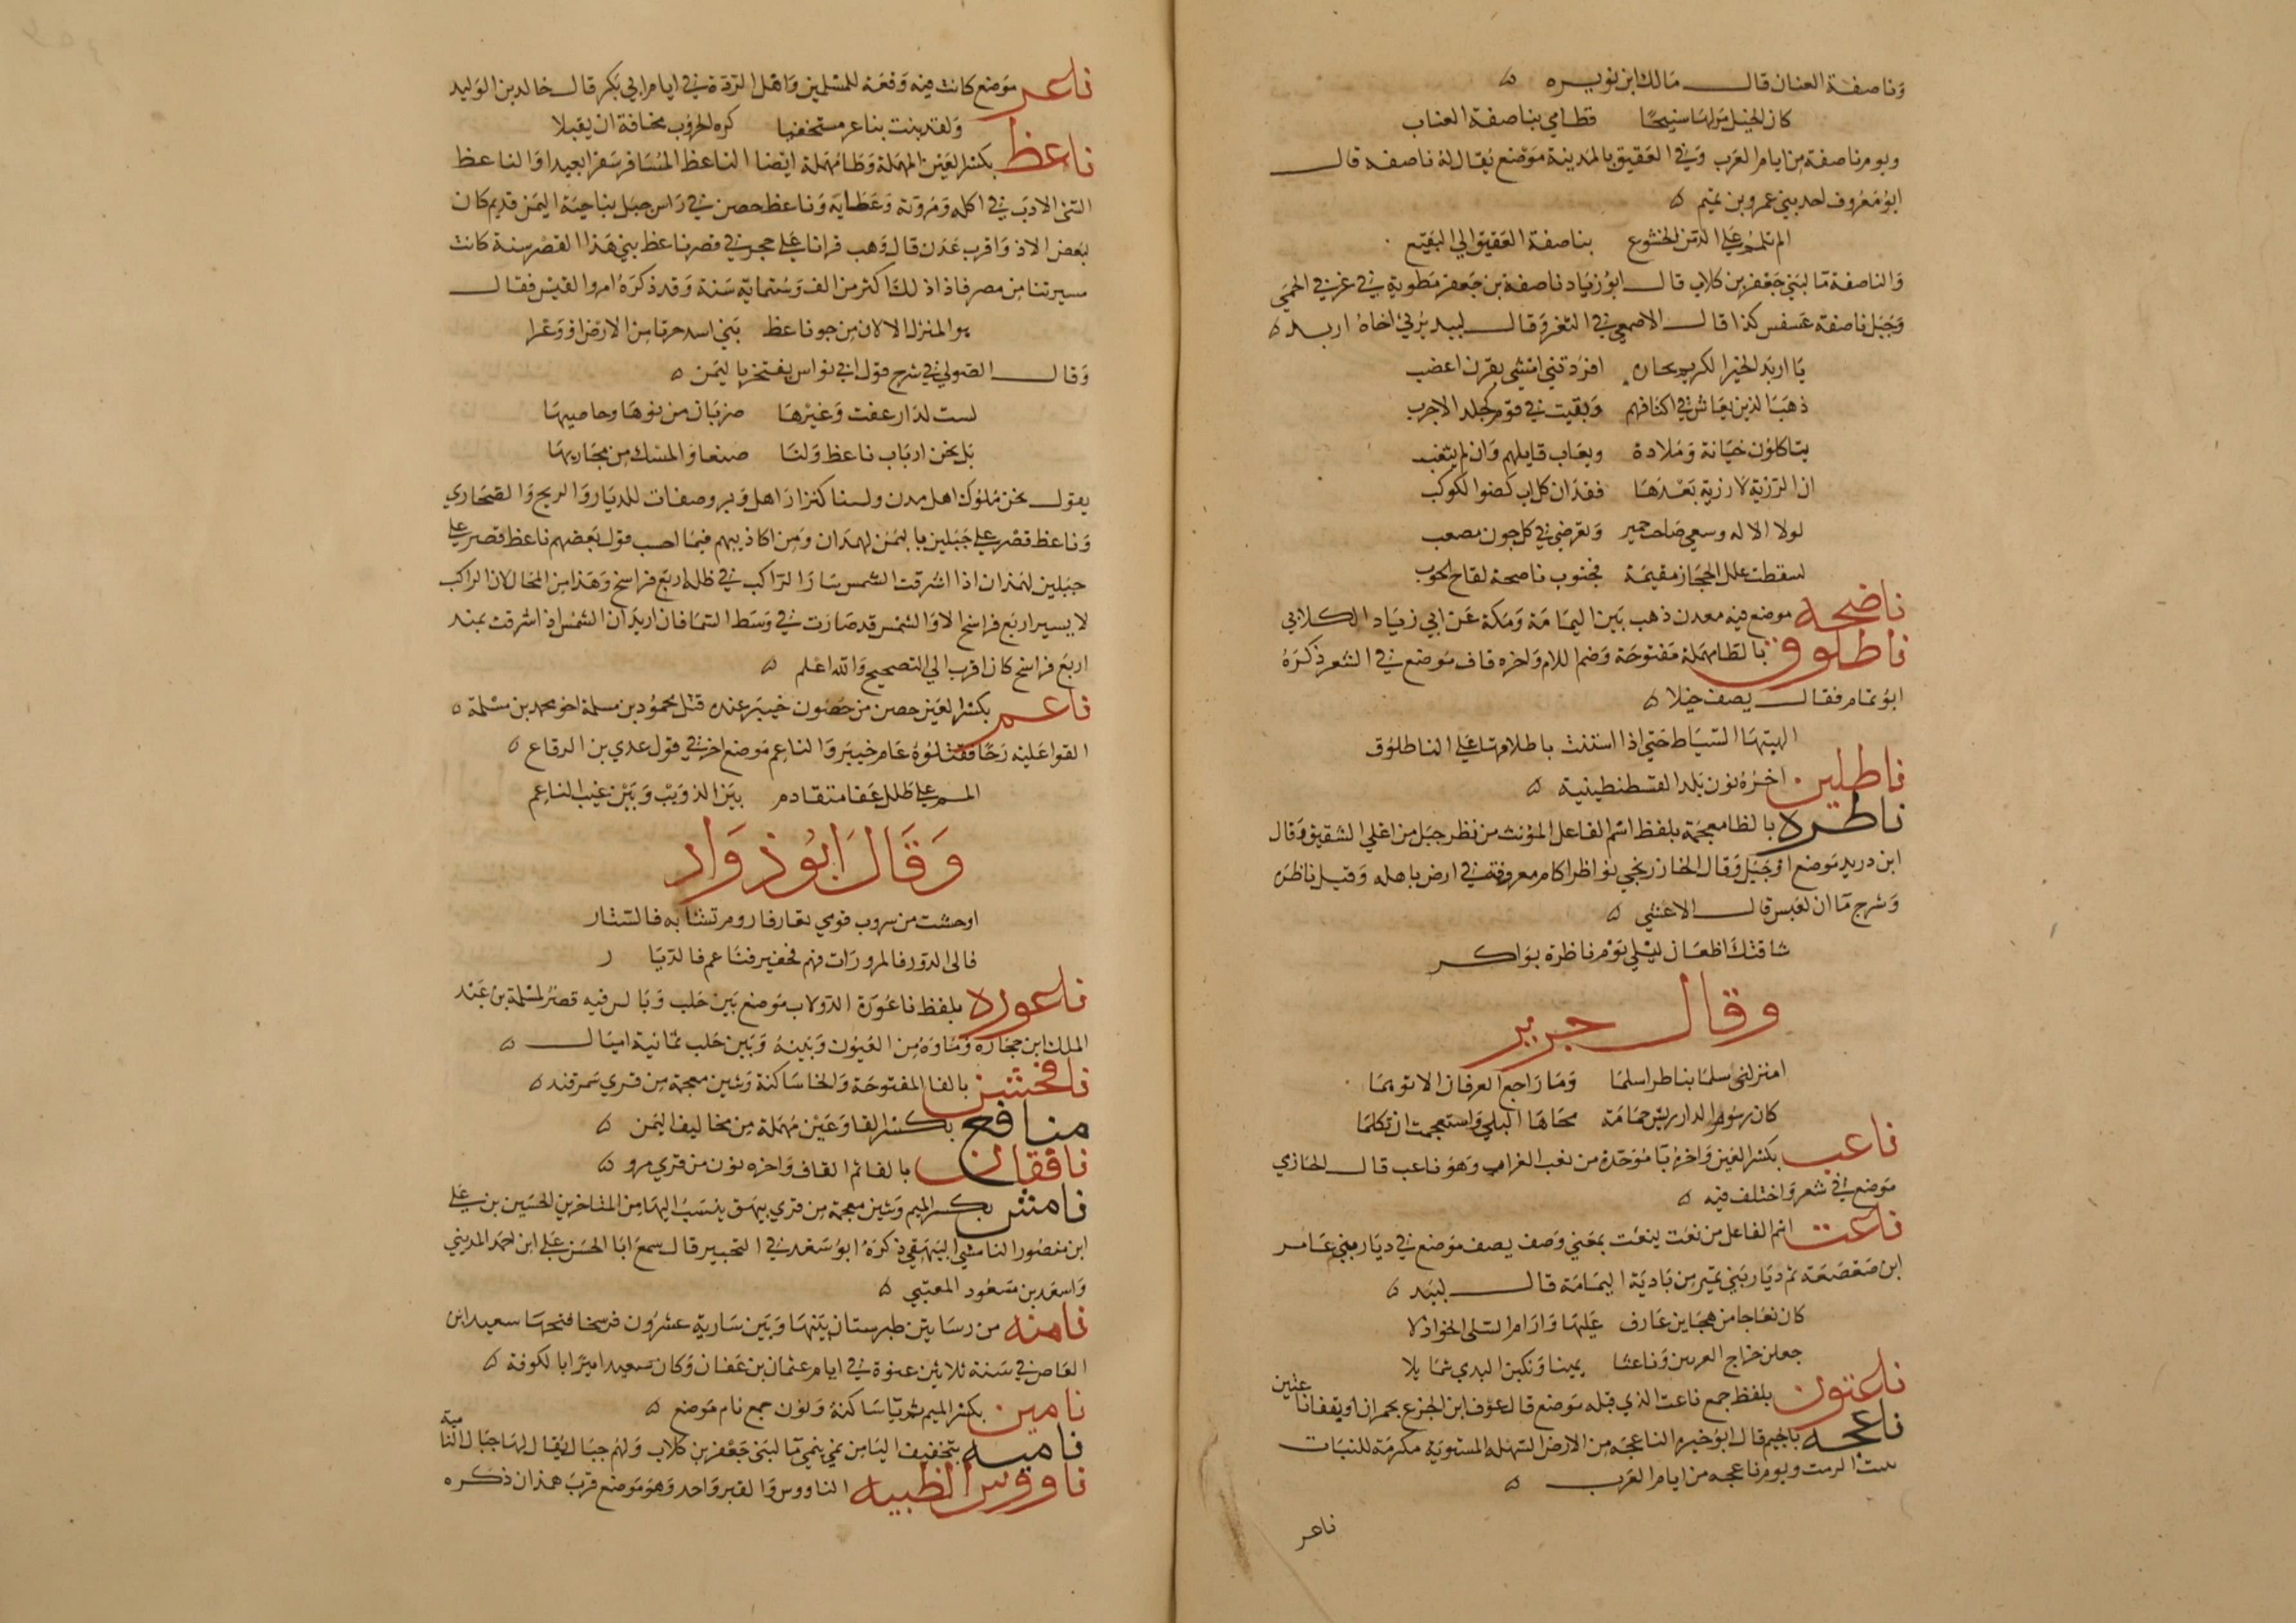 وناصفة العنان قال مالك ابن نويره
كان الخيل مر لها سنيحًا قطامي بناصفة العناب
ويوم ناصفة من ايام العرب وفي العقيق بالمدينة موضع يقال له ناصفه قال
ابو معروف احد بني عمرو بن تميم
الم تلمم على الدمن الخشوع بناصفة العقيق الي البقيع
والناصفة ما لبني جعفر بن كلاب قال ابو زياد ناصفة بن جعفر مطوية في غربي الحمى
وجبل ناصفة عسعس كذا قال الاصمعي في الثغر وقال لبيد يرثي اخاه اربد
يا اربد الخير الكريم افردتني امشي بقرن اعضب
ذهب الذين يعاش في اكنافهم وبقيت في قوم كجلد الاجرب
يتاكلون خيانة وملادة ويعاب قايلهم وان لم يثغب
ان الرزية لا رزية بعدها فقدان كل اب كضوا الكوكب
لولا الاله وسعي صاحب حمير وتعرضي في كل جون مصعب
لسقطت علل الحجاز مقيمة فجنوب ناصحة لقاح الحوب
ناضحه موضع فيه معدن ذهب بين اليمامة ومكة عن ابي زياد الكلابي
ناطلوق بالطا مهملة مفتوحة وضم اللام واخره قاف موضع في الشعر ذكره
ابو تمام فقال يصف خيلا
الهبتها السياط حتى اذا استنت باطلاقها على الناطلوق
ناطلين اخره نون بلد القسطنطينية
ناطره بالظا معجمة بلفظ اسم الفاعل المؤنث من نظر جبل من اعلي الشقيق وقال
ابن دريد موضع او جبل وقال الخارزنجي نواظر اكام معروفة في ارض باهله وقيل ناظره
وشرج ما ان لعبس قال الاعشي
شاقتك اظعان ليلي يوم ناظرة بواكر
وقال جرير
امنزلتى سلما بناطر اسلما وما راجع العرفان الا توهما
كان رسوم الدار ريش حمامة محاها البلي واستعجمت ان تكلما
ناعب بكسر العين واخره با موحدة من نعب الغراب وهو ناعب قال الحازمي
موضع في شعر واختلف فيه
ناعت اسم الفاعل من نعت ينعت بمعني وصف يصف موضع في ديار بني عامر
ابن صعصعة ثم ديار بني نمير من بادية اليمامة قال لبيد
كان نعاجا من هجاين عارف عليها وارام السلى الخواذلا
جعلن خراج القرنين وناعتا يمينا ونكبن البدي شمايلا
ناعتون بلفظ جمع ناعت الذي قبله موضع قال عوف ابن الجزع بحمران او بقفا ناعتين
ناعجه بالجيم قال ابو خيرة الناعجة من الارض السهلة المستوية مكرمة للنبات
تنبت الرمث ويوم ناعجه من ايام العرب
ناعر
ناعر موضع كانت فيه وقعة للمسلمين واهل الردة في ايام ابي بكر قال خالد بن الوليد
ولقد بنت بناعر مستخفيا كره الحروب مخافة ان يقبلا
ناعظ بكسر العين المهملة وظا مهملة ايضا الناعظ المسافر سفرا بعيدا والناعظ
السئ الادب في اكله ومروته وعطايه وناعظ حصن في راس جبل بناحية اليمن قديم كان
لبعض الاذوا قرب عدن قال وهب قرانا على حجر في قصر ناعظ بني هذا القصر سنة كانت
مسيرتنا من مصر فاذا ذلك اكثر من الف وستماية سنة وقد ذكره امرو القيس فقال
هو المنزل الالاف من جو ناعظ بني اسد حزنا من الارض اوعرا
وقال الصولي في شرح قول ابي نواس يفتخر باليمن
لست لدار عفت وغيرها ضربان من نوها وحاصيها
بل نحن ارباب ناعظ ولنا صنعا والمسك من محاريبها
يقول نحن ملوك اهل مدن ولسنا كنزار اهل وبر وصفات للديار والريح والصحاري
وناعظ قصر على جبلين باليمن لهمدان ومن اكاذيبهم فيما احسب قول بعضهم ناعظ قصر على
جبلين لهمدان اذا اشرقت الشمس سار الراكب في ظله اربع فراسخ وهذا من المحال لان الراكب
لا يسير اربع فراسخ الا والشمس قد صارت في وسط السما فان اريد ان الشمس اذ اشرقت يمتد
اربع فراسخ كان اقرب الي التصحيح والله اعلم
ناعم بكسر العين حصن من حصون خيبر عنده قتل محمود بن مسلمة اخو محمد بن مسلمة
القوا عليه رحا فقتلوه عام خيبر والناعم موضع اخر في قول عدي بن الرقاع
المم على طلل عفا متقادم بين الذويب وبين غيب الناعم
وقال ابو ذواد
اوحشت من سروب قومي تعار فاروم تشابه فالستار
فالى الدور فالمرورات منهم فحفير فناعم فالديا ر
ناعوره بلفظ ناعورة الدولاب موضع بين حلب وبالس فيه قصر لمسلمة بن عبد
الملك ابن حجارة وماوه من العيون وبينه وبين حلب ثمانية اميال
نافخشين بالفا المفتوحة والخا ساكنة وشين معجمة من قري سمرقند
منافع بكسر الفا وعين مهملة من مخاليف اليمن
نافقان بالفا ثم القاف واخره نون من قري مرو
نامش بكسر الميم وشين معجمة من قري بيهق ينسب اليها من المتاخرين الحسين بن علي
ابن منصور النامشي البيهقي ذكره ابو سعد في التحبير قال سمع ابا الحسن علي ابن احمد المديني
واسعد بن مسعود العتبي
نامنه من رساتيق طبرستان بينها وبين سارية عشرون فرسخا فتحها سعيد ابن
العاص في سنة ثلاثين عنوة في ايام عثمان بن عفان وكان سعيد اميرا بالكوفة
نامين بكسر الميم ثم يا ساكنة ونون جمع نام موضع
ناميه بتخفيف اليا من نمي ينمي ما لبنى جعفر بن كلاب ولهم جبال يقال لها جبال النامية
ناووس الظبيه الناووس والقبر واحد وهو موضع قرب همذان ذكره